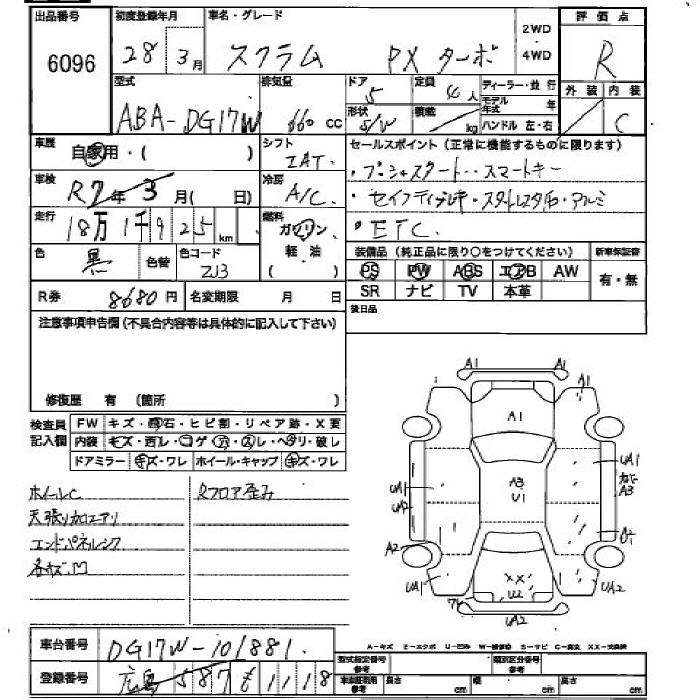 出品番号 初度登録年月 車名・グレード 評価点
6096 28 3月 スクラム PX ターボ 2WD 4WD R
型式 排気量 ドア 定員 ディーラー・並行 外装 内装
ABA-DG17W 660 cc 5 4人 モデル年式 年 C
形状 S/W 積載 kg ハンドル 左・右
車歴 自家用・( ) シフト IAT. セールスポイント(正常に機能するものに限ります)
車検 R7年3月( 日) 冷房 A/C ・プッシュスタート・・スマートキー
走行 18万1千925km 燃料 ガソリン 軽油 ( )
・ETC.
色 黒 色替 色コード ZJ3 装備品(純正品に限り○をつけてください) 新車保証書
PS PW ABS エアB AW 有・無
R券 8680円 名変期限 月 日 SR ナビ TV 本革
注意事項申告欄(不具合内容等は具体的に記入して下さい) 後日品
修復歴 有 (箇所 )
検査員記入欄 FW キズ・飛石・ヒビ割・リペア跡・X要
内装 キズ・汚レ・コゲ・穴・スレ・ヘタリ・破レ
ドアミラー キズ・ワレ ホイール・キャップ キズ・ワレ
ホイールC Rフロア歪み
A1 A1 A1
A1
UA1 UA1 A3
UA2 A3 U1
A2 A2
UA1 XX UA2
U2
UA2
A-キズ E-エクボ U-凹み W-補修跡 S-サビ C-腐食 XX-交換済
車台番号 DG17W-101881.
登録番号 広島 587 も 1118
型式指定番号 参考 類別区分番号 参考
車庫証明用 参考 長さ cm 幅 cm 高さ cm